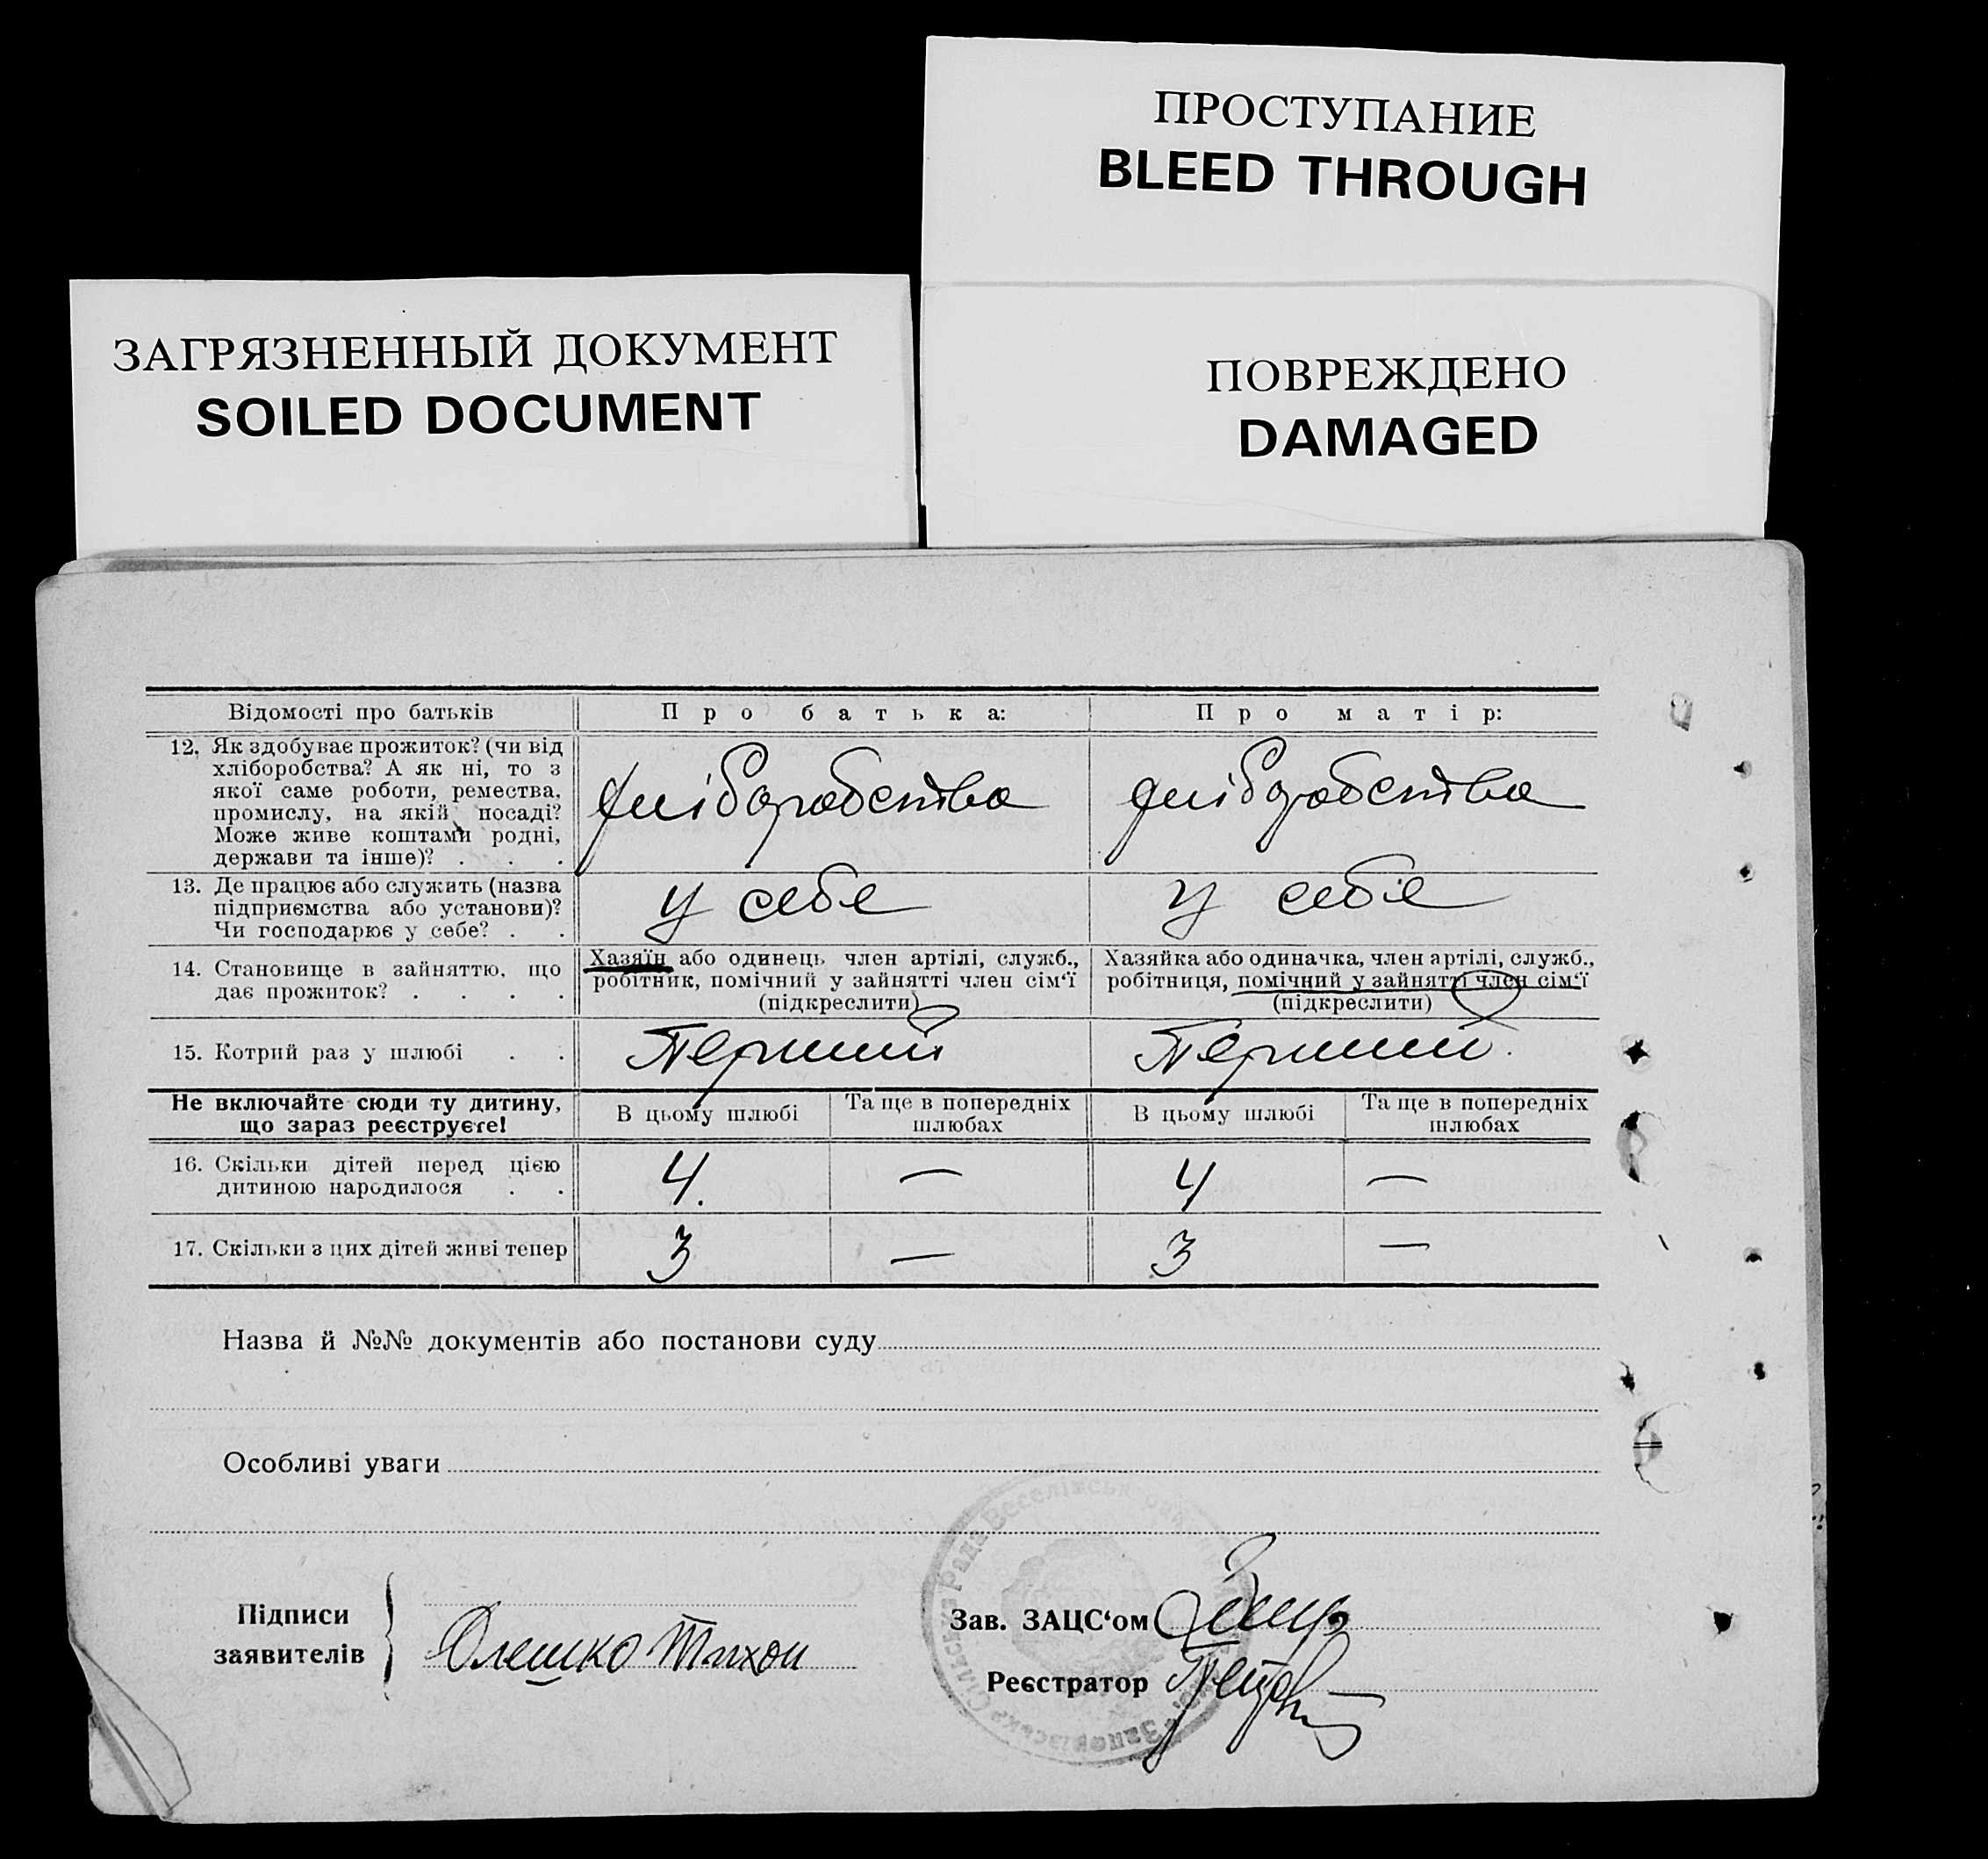 ПРОСТУПАНИЕ
BLEED THROUGH
ЗАГРЯЗНЕННЫЙ ДОКУМЕНТ
SOILED DOCUMENT
ПОВРЕЖДЕНО
DAMAGED
Відомості про батьків
Про батька:
Про матір:
12. Як здобуває прожиток? (чи від
хліборобства? А як ні, то з
якої саме роботи, ремества,
промислу, на якій посаді?
Може живе коштами родні,
держави та інше)? . . .
хліборобства
хліборобства
13. Де працює або служить (назва
підприємства або установи)?
Чи господарює у себе? . .
у себе
у себе
14. Становище в зайняттю, що
дає прожиток? . . . .
Хазяїн або одинець член артілі, служб.,
робітник, помічний у зайнятті член сім‘ї
(підкреслити)
Хазяйка або одиначка, член артілі, служб.,
робітниця, помічний у зайнятті член сім‘ї
(підкреслити)
15. Котрий раз у шлюбі . .
Перший
Перший.
Не включайте сюди ту дитину,
що зараз реєструєте!
В цьому шлюбі
Та ще в попередніх
шлюбах
В цьому шлюбі
Та ще в попередніх
шлюбах
16. Скільки дітей перед цією
дитиною народилося . .
4.
—
4
—
17. Скільки з цих дітей живі тепер
3
—
3
—
Назва й №№ документів або постанови суду
Особливі уваги
Підписи
заявителів
Олешко Тихон
Зав. ЗАЦС‘ом
Реєстратор
Сільська Рада Веселівськ